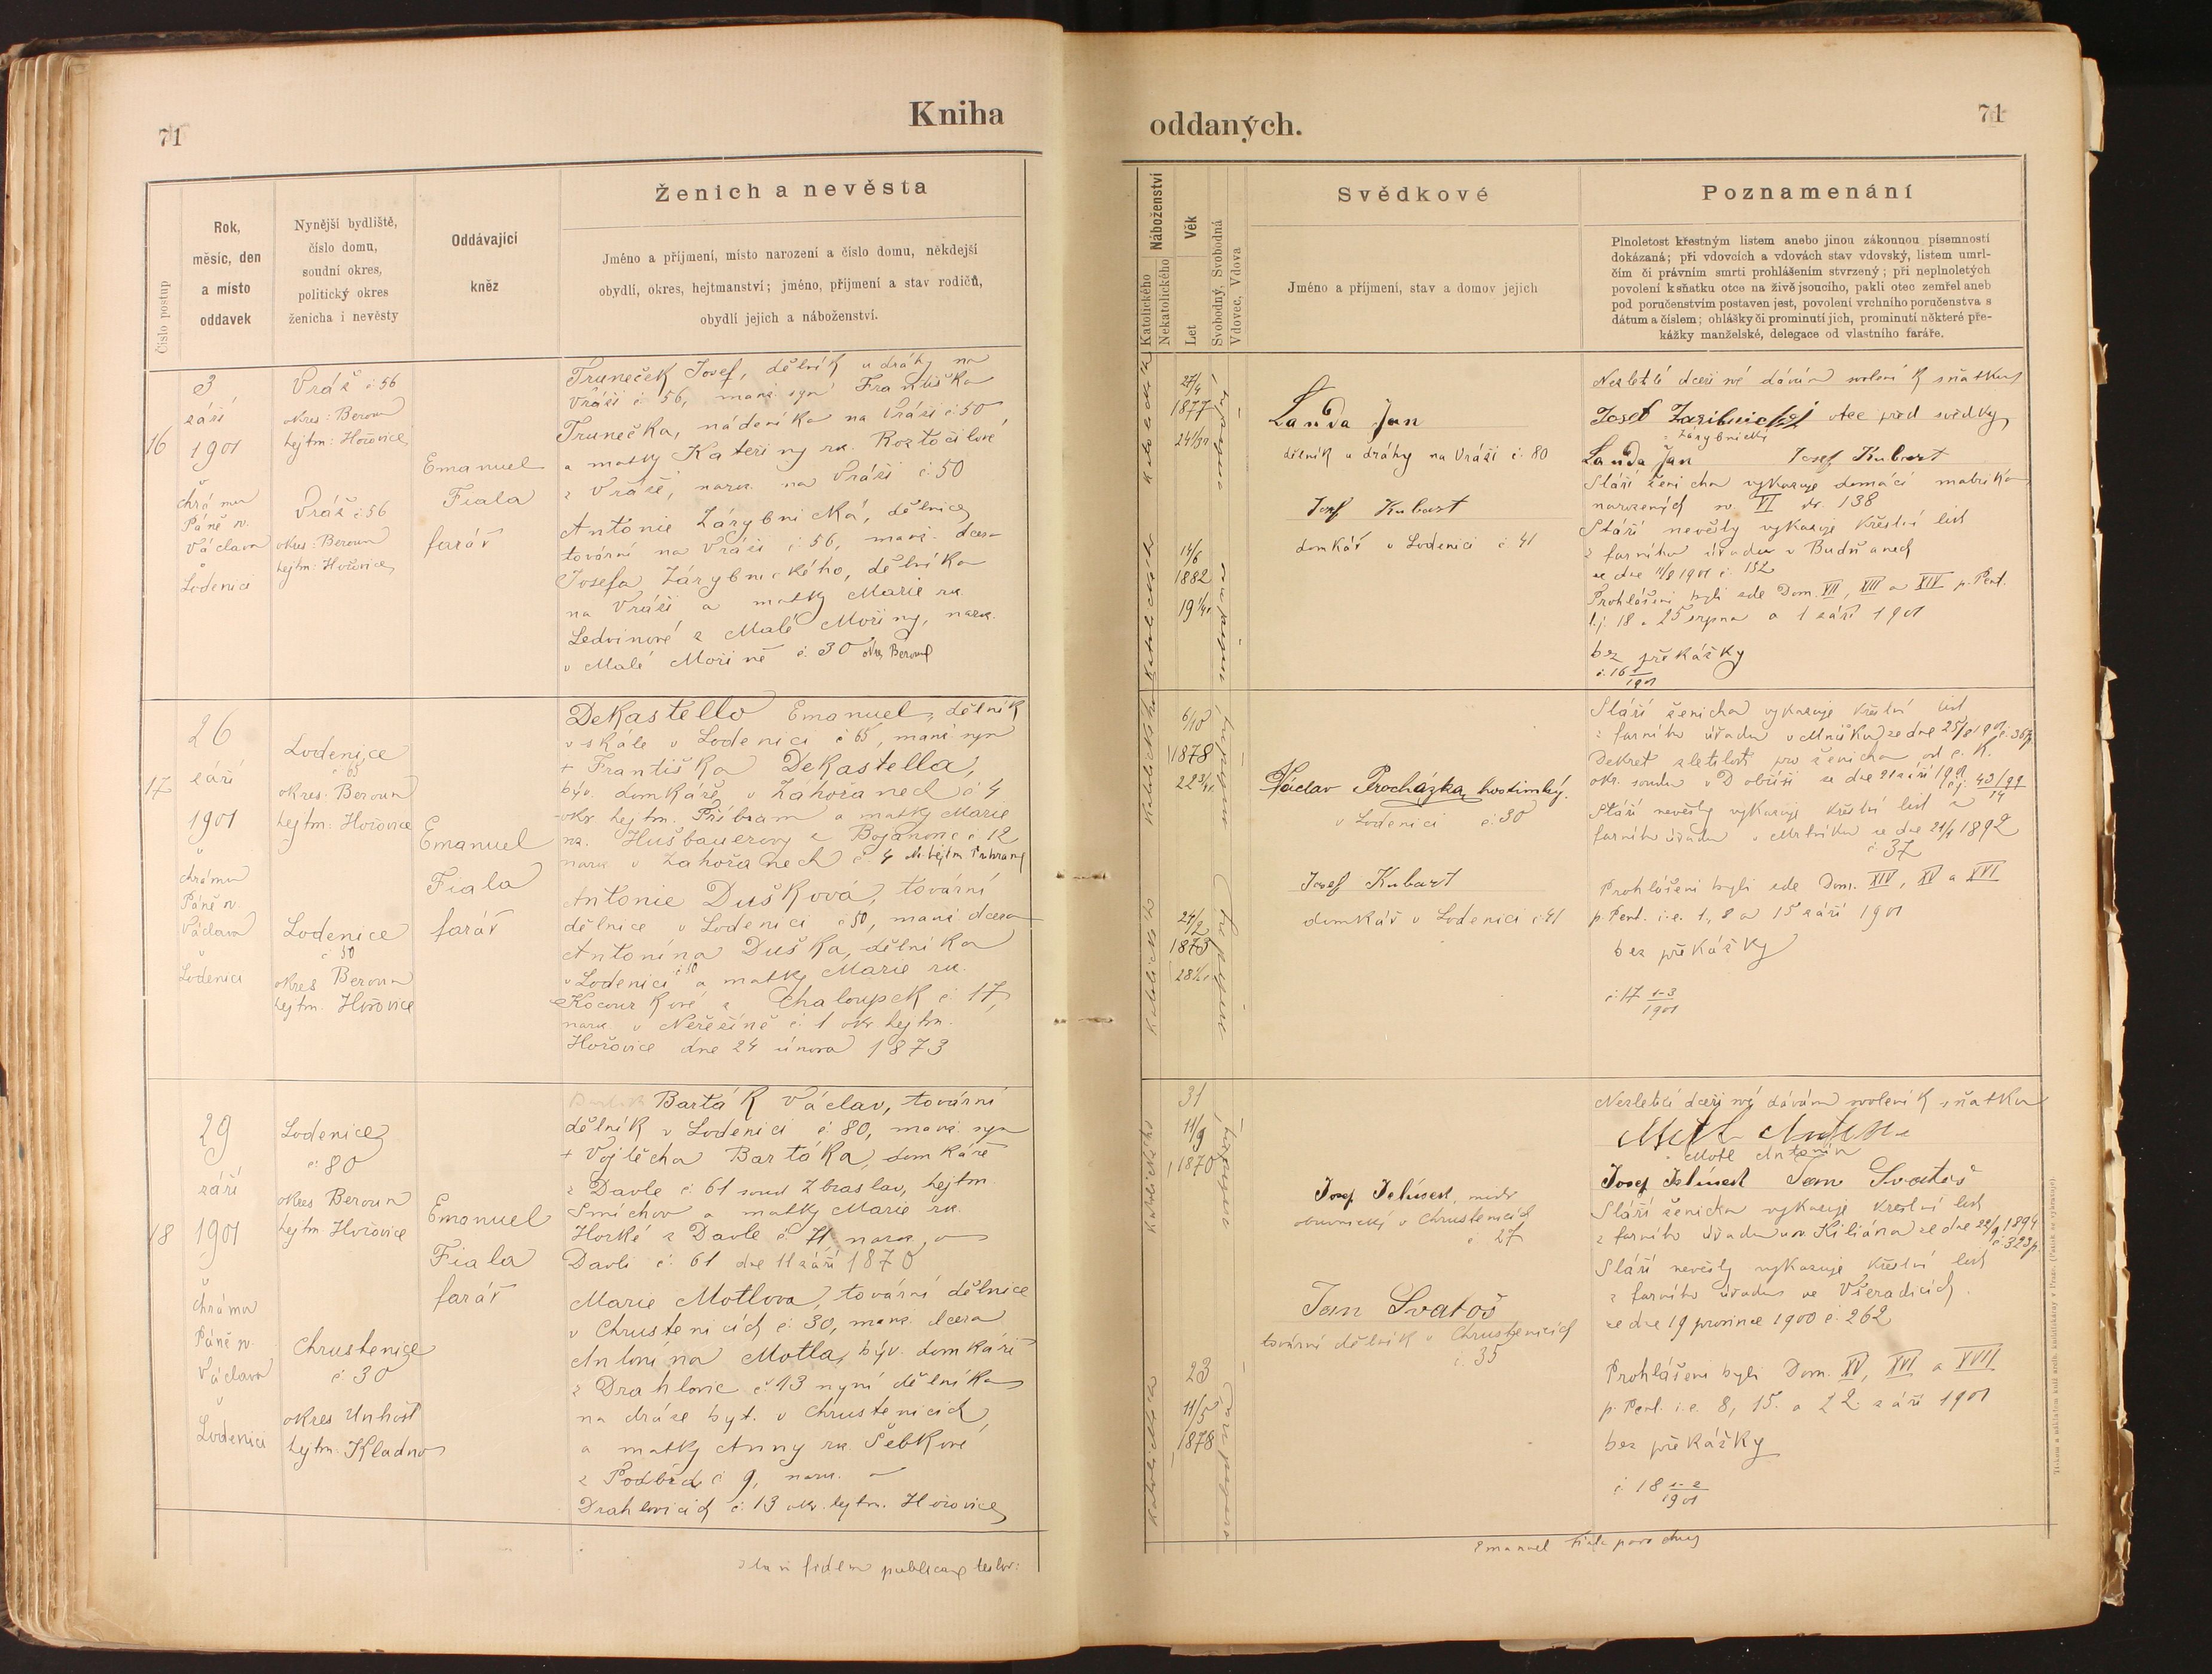 71
Kniha
Číslo postup
Rok,
měsíc, den
a místo
oddavek
Nynější bydliště,
číslo domu,
soudní okres,
politický okres
ženicha i nevěsty
Oddávající
kněz
Ženich a nevěsta
Jméno a příjmení, místo narození a číslo domu, někdejší
obydlí, okres, hejtmanství; jméno, příjmení a stav rodičů,
obydlí jejich a náboženství.
16
3
září
1901
v
chrámu
Páně sv.
Václava
v
Lodenici
Vráž č 56
okres: Beroun
hejtm: Hořovice
Vráž č 56
okres: Beroun
hejtm: Hořovice
Emanuel
Fiala
farář
Truneček Josef, dělník u dráhy na
Vráži č 56, manž. syn Františka
Trunečka, nádeníka na Vráži č. 50
a matky Kateřiny roz. Roztočilové
z Vráže, naroz. na Vráži č. 50
Antonie Zárybnická, dělnice
tovární na Vráži č 56, manž. dcera
Josefa Zárybnického, dělníka
na Vráži a matky Marie roz.
Ledvinové z Malé Mořiny, naroz.
v Malé Mořině č. 30 okres Beroun
17
26
září
1901
v
chrámu
Páně sv.
Václava
v
Lodenici
Lodenice
č 65
okres: Beroun
hejtm: Hořovice
Lodenice
č 50
okres Beroun
hejtm. Hořovice
Emanuel
Fiala
farář
DeKastello Emanuel, dělník
v skále v Lodenici č 65, manž. syn
+ Františka DeKastella,
býv. domkáře v Zahořanech č 4
okr hejtm. Příbram a matky Marie
roz. Hušbauerovy z Bojanovic č 12
naroz. v Zahořanech č. 4 hejtm. Příbram
Antonie Dušková, tovární
dělnice v Lodenici č 50, manž. dcera
Antonína Duška, dělníka
v Lodenici č 50 a matky Marie roz.
Kocourkové z Chaloupek č 17,
naroz. v Neřežíně č. 1 okr hejtm.
Hořovice dne 24 února 1873
18
29
září
1901
v
chrámu
Páně sv.
Václava
v
Lodenici
Lodenice
č. 80
okres Beroun
hejtm Hořovice
Chrustenice
č 30
okres Unhošť
hejtm. Kladno
Emanuel
Fiala
farář
Barták Václav, tovární
dělník v Lodenici č. 80, manž. syn
+ Vojtěcha Bartáka, domkáře
z Davle č. 61 soud Zbraslav, hejtm.
Smíchov a matky Marie roz.
Horké z Davle č. 71 naroz. v
Davli č. 61 dne 11 září 1870
Marie Motlova, tovární dělnice
v Chrustenicích č. 30, manž. dcera
Antonína Motla, býv. domkáře
z Drahlovic č 13 nyní dělníka
na dráze byt. v Chrustenicích
a matky Anny roz. Šebkové
z Podbrd č 9, naroz. v
Drahlovicích č. 13 okr. hejtm. Hořovice
fidem publicam testor:
oddaných.
71
Náboženství
Katolického
Nekatolického
Věk
Let
Svobodný, Svobodná
Vdovec, Vdova
Svědkové
Jméno a příjmení, stav a domov jejich
Poznamenání
Plnoletost křestným listem anebo jinou zákonnou písemností
dokázaná; při vdovcích a vdovách stav vdovský, listem umrl-
čím či právním smrti prohlášením stvrzený; při neplnoletých
povolení k sňatku otce na živě jsoucího, pakli otec zemřel aneb
pod poručenstvím postaven jest, povolení vrchního poručenstva s
dátum a číslem; ohlášky či prominutí jich, prominutí některé pře-
kážky manželské, delegace od vlastního faráře.
Katolického
27/4
1877
24 1/3
svobodný
Katolického
14/6
1882
19 1/4
svobodná
Landa Jan
dělník u dráhy na Vráži č. 80
Josef Kubart
domkář v Lodenici č 41
Nezletilé dceři své dávám svolení k sňatku
Josef Zaribnickej otec před svědky
= Zárybnický
Landa Jan Josef Kubart
Stáří ženicha vykazuje domácí matrika
narozených sv. VI str. 138
Stáří nevěsty vykazuje křestní list
z farního úřadu v Budňanech
ze dne 11/8 1901 č. 152
Prohlášeni byli ede Dom. XII, XIII a XIV p. Pent.
t.j. 18 a 25 srpna a 1 září 1901
bez překážky
č. 16 1/1901
Katolického
6/10
1878
22 3/4
svobodný
Katolického
24/2
1873
28 1/2
svobodná
Václav Procházka hostimský.
v Lodenici č. 30
Josef Kubart
domkář v Lodenici č 41
Stáří ženicha vykazuje křestní list
z farního úřadu v Mníšku ze dne 25/8 1901 č. 367
Dekret zletilosti pro ženicha od c. k.
okr. soudu v Dobříši ze dne 21 září 1901 čj. 43/99 14
Stáří nevěsty vykazuje křestní list z
farního úřadu v Mrtníku ze dne 21/4 1892
č 37
Prohlášeni byli ede Dom. XIV, XV a XVI
p. Pent. i.e. 1, 8 a 15 září 1901
bez překážky
č. 17 1-3/1901
Katolického
31
11/9
1870
svobodný
Katolického
23
11/5
1878
svobodná
Josef Jelínek, mistr
obuvnický v Chrustenicích
č 27
Jan Svatoš
tovární dělník v Chrustenicích
č. 35
Nezletilé dceři své dávám svolení k sňatku
Motl Antonín
Josef Jelínek Jan Svatoš
Stáří ženicha vykazuje křestní list
z farního úřadu u sv. Kiliána ze dne 22/9 1894
č 323
Stáří nevěsty vykazuje křestní list
z farního úřadu ve Všeradicích
ze dne 19 prosince 1900 č. 262
Prohlášeni byli Dom. XV, XVI a XVII
p. Pent. i.e. 8, 15. a 22. září 1901
bez překážky
č. 18 1-2/1901
Emanuel Fiala parochus